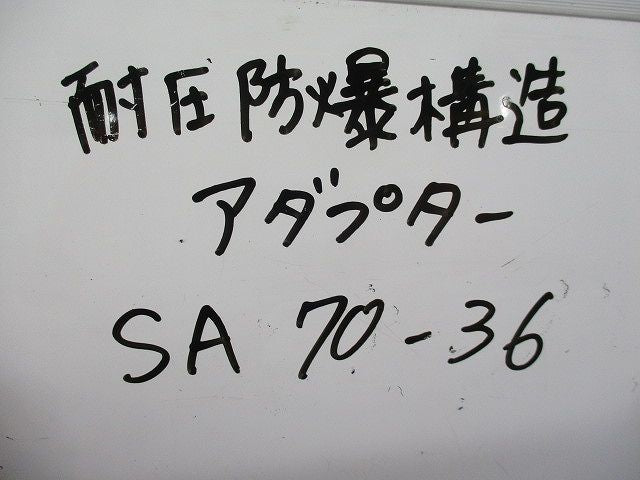 耐圧防爆構造
アダプター
SA 70-36